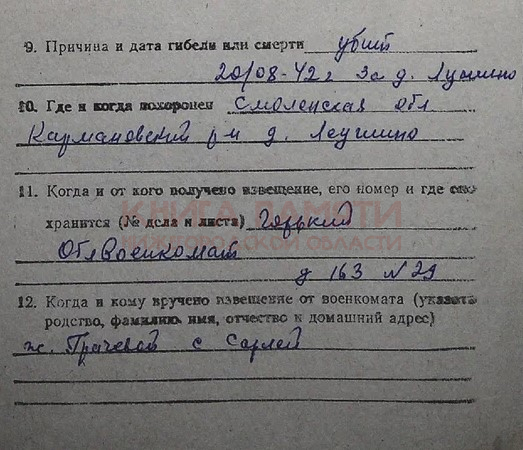 9. Причина и дата гибели или смерти убит
20/08-42 г За д. Лушино
10. Где и когда похоронен Смоленская обл
Кармановский р-н д.
11. Когда и от кого получено извещение, его номер и где оно
хранится (№ дела и листа) Горький
ОблВоенкомат
д 163 N 29
12. Когда и кому вручено извещение от военкомата (указать
родство, фамилию, имя, отчество и домашний адрес)
ж. Грачевой с Сарлей
КНИГА ПАМЯТИ
НИЖЕГОРОДСКОЙ ОБЛАСТИ